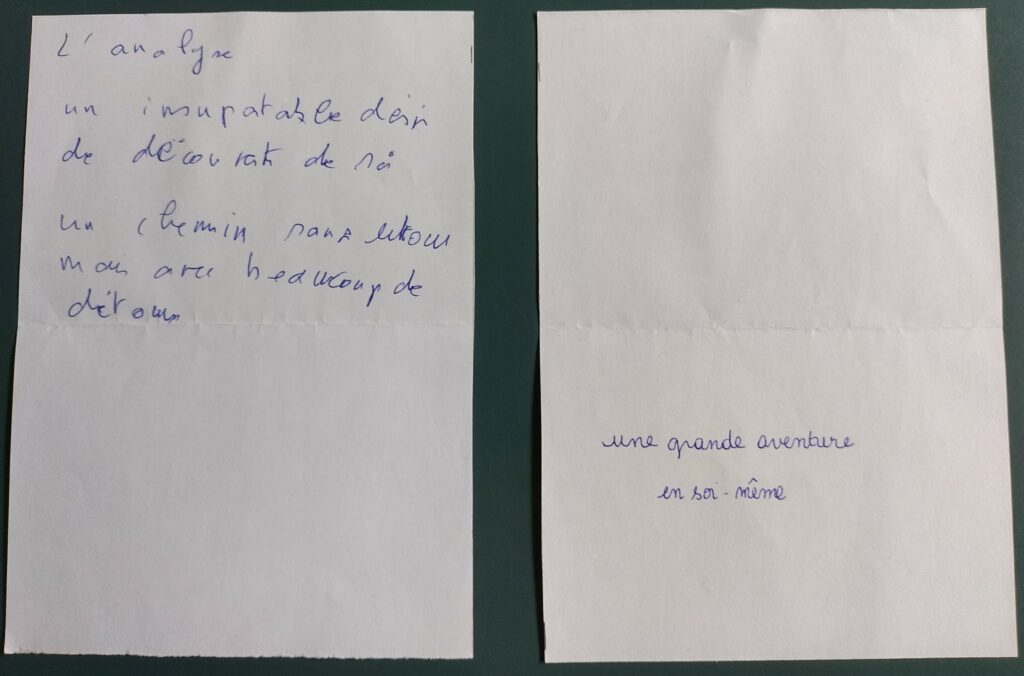 L'analyse
un insupportable désir
de découverte de soi
un chemin sans retour
mais avec beaucoup de
détours
une grande aventure
en soi-même